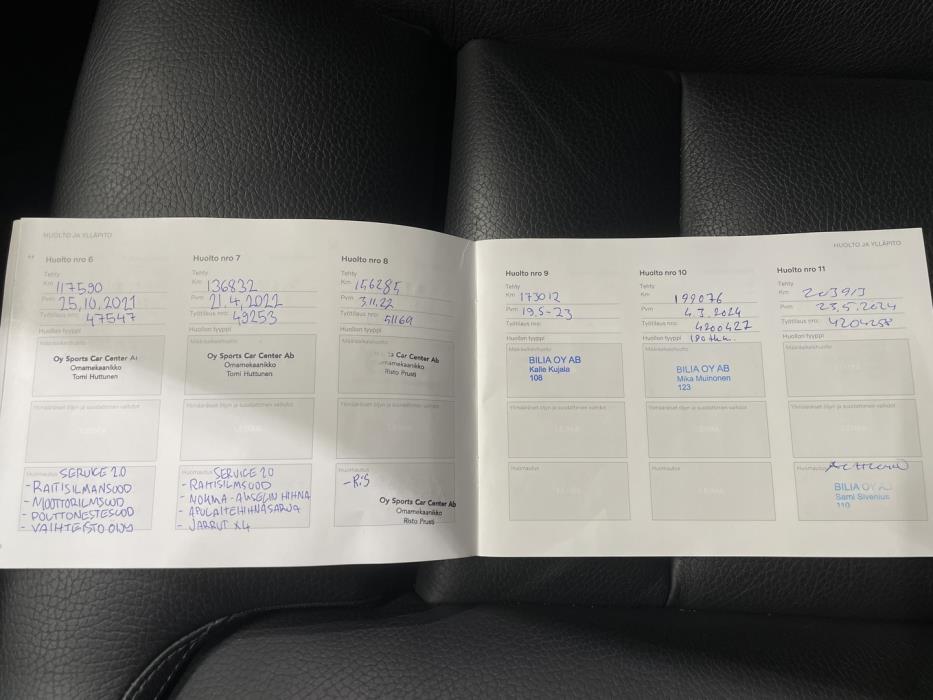 HUOLTO JA YLLÄPITO
Huolto nro 6
Tehty
Km 117590
Pvm 25,10,2021
Työtilaus nro: 47547
Huollon tyyppi
Määräaikaishuolto
Oy Sports Car Center
Omamekaanikko
Tomi Huttunen
Ylimääräinen öljyn ja suodattimen vaihdot
LEIMA
Huomautus SERVICE 2.0
- RAITISILMANSUOD
- MOOTTORILMSUOD
- POLTTONESTESUOD
- VAIHTEISTOÖLJY
Huolto nro 7
Tehty
Km 136832
Pvm 21.4,2022
Työtilaus nro: 49253
Huollon tyyppi
Määräaikaishuolto
Oy Sports Car Center Ab
Omamekaanikko
Tomi Huttunen
Ylimääräinen öljyn ja suodattimen vaihdot
LEIMA
Huomautus SERVICE 20
- RAITISILMSUOD
- APULAITEHIHNASARJA
- JARRUT X4
Huolto nro 8
Tehty
Km 156285
Pvm 3.11.22
Työtilaus nro: 51169
Huollon tyyppi
Määräaikaishuolto
Car Center Ab
Omamekaanikko
Risto Prusti
Ylimääräinen öljyn ja suodattimen vaihdot
Huomautus
Oy Sports Car Center Ab
Omamekaanikko
Risto Prusti
Huolto nro 9
Tehty
Km 173012
Pvm 19.5-23
Työtilaus nro:
Huollon tyyppi
Määräaikaishuolto
BILIA OY AB
Kalle Kujala
108
Ylimääräinen öljyn ja suodattimen vaihdot
Huomautus
HUOLTO JA YLLÄPITO
Huolto nro 10
Tehty
Km 199076
Pvm 4.3.2024
Työtilaus nro: 4200427
Huollon tyyppi 190 tkm.
Määräaikaishuolto
BILIA OY AB
Mika Muinonen
123
Ylimääräinen öljyn ja suodattimen vaihdot
Huomautus
Huolto nro 11
Tehty
Km 203913
Pvm 23.5.2024
Työtilaus nro: 4204258
Huollon tyyppi
Määräaikaishuolto
Ylimääräinen öljyn ja suodattimen vaihdot
Huomautus
BILIA OY
Sami Sivenius
110